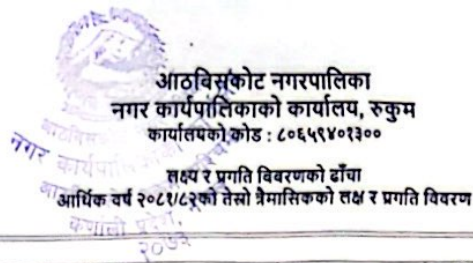 आठबिसकोट नगरपालिका
नगर कार्यपालिकाको कार्यालय, रुकुम
कार्यालयको कोड : ८०६५९४०१३००
नगर कार्यपालिकाको
लक्ष्य र प्रगति विवरणको ढाँचा
आर्थिक वर्ष २०८१/८२को तेस्रो त्रैमासिकको लक्ष र प्रगति विवरण
कर्णाली प्रदेश,
२०७३